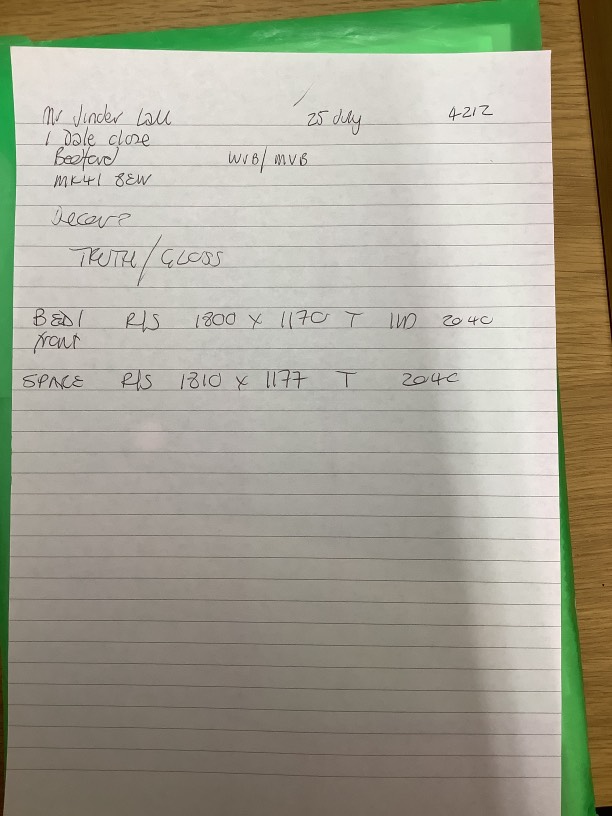 Mr Jinder Lall 25 July 4212
1 Dale close
Bedford WVB/MVB
MK41 8EW
Decora?
TRUTH/GLOSS
BED1 R/S 1800 x 1170 T IND 2040
front
SPACE R/S 1810 x 1177 T 2040